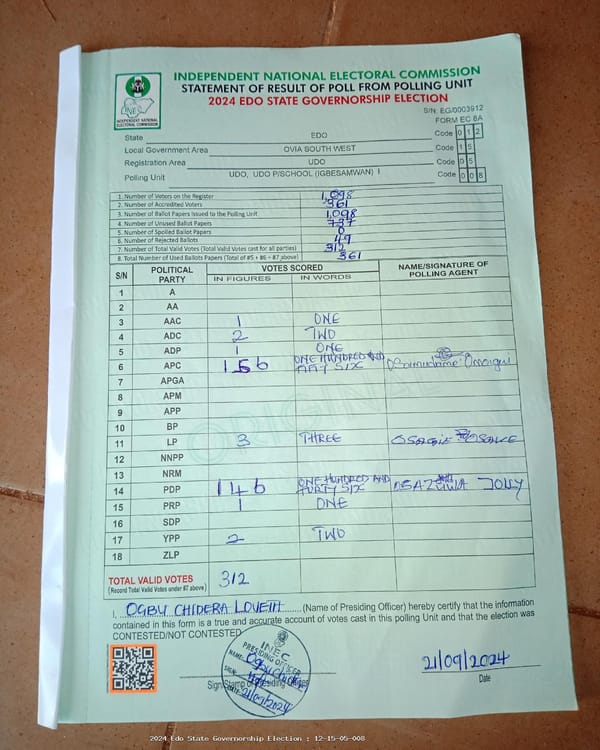 INDEPENDENT NATIONAL ELECTORAL COMMISSION
STATEMENT OF RESULT OF POLL FROM POLLING UNIT
2024 EDO STATE GOVERNORSHIP ELECTION
INEC
INDEPENDENT NATIONAL ELECTORAL COMMISSION
S/N: EG/0003912
FORM EC 8A
State EDO Code 0 1 2
Local Government Area OVIA SOUTH WEST Code 1 5
Registration Area UDO Code 0 5
Polling Unit UDO, UDO P/SCHOOL (IGBESAMWAN) I Code 0 0 8
1. Number of Voters on the Register 1,098
2. Number of Accredited Voters 361
3. Number of Ballot Papers Issued to the Polling Unit 1,098
4. Number of Unused Ballot Papers 737
5. Number of Spoiled Ballot Papers 0
6. Number of Rejected Ballots 49
7. Number of Total Valid Votes (Total Valid Votes cast for all parties) 312
8. Total Number of Used Ballots Papers (Total of #5 + #6 + #7 above) 361
S/N POLITICAL PARTY VOTES SCORED NAME/SIGNATURE OF POLLING AGENT
IN FIGURES IN WORDS
1 A
2 AA
3 AAC 1 ONE
4 ADC 2 TWO
5 ADP 1 ONE
6 APC 156 ONE HUNDRED AND FIFTY SIX
7 APGA
8 APM
9 APP
10 BP
11 LP 3 THREE OSAGIE
12 NNPP
13 NRM
14 PDP 146 ONE HUNDRED AND FURTY SIX JOLLY
15 PRP 1 ONE
16 SDP
17 YPP 2 TWO
18 ZLP
TOTAL VALID VOTES 312
(Record Total Valid Votes under #7 above)
I, OGBU CHIDERA LOVETH (Name of Presiding Officer) hereby certify that the information
contained in this form is a true and accurate account of votes cast in this polling Unit and that the election was
CONTESTED/NOT CONTESTED.
INEC
PRESIDING OFFICER
NAME:
SIGN:
DATE: 21/09/2024
Sign/Stamp of Presiding Officer
21/09/2024
Date
2024 Edo State Governorship Election : 12-15-05-008